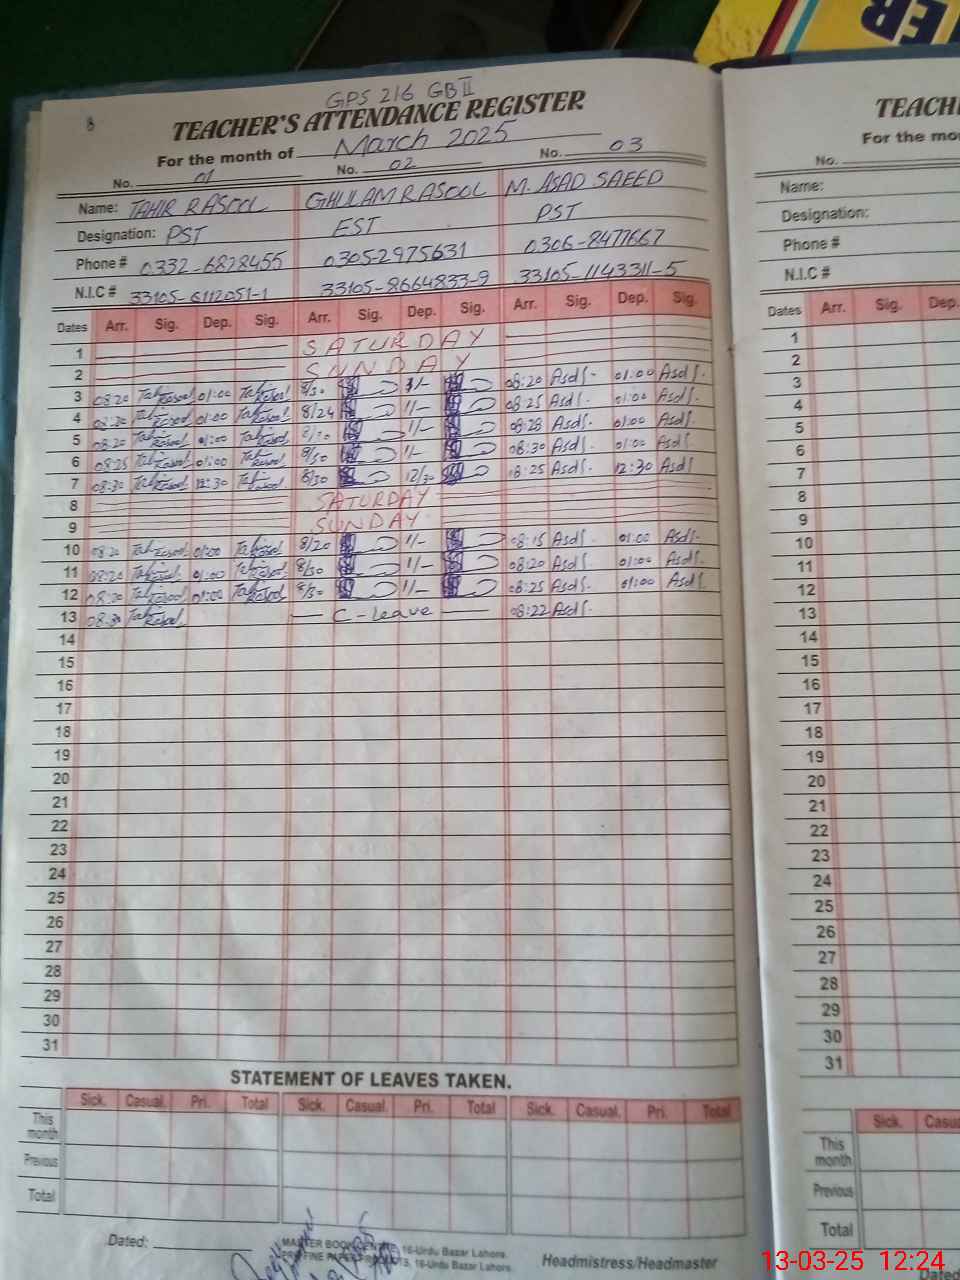 ER
GPS 216 GB II
8
TEACHER'S ATTENDANCE REGISTER
For the month of March 2025
No. 01 No. 02 No. 03
Name: TAHIR RASOOL GHULAM RASOOL M. ASAD SAEED
Designation: PST EST PST
Phone # 0332-6828455 0305-2975631 0306-8477667
N.I.C # 33105-6112051-1 33105-8664833-9 33105-1143311-5
Dates Arr. Sig. Dep. Sig. Arr. Sig. Dep. Sig. Arr. Sig. Dep. Sig.
1 SATURDAY
2 SUNDAY
3 08:20 01:00 8/30 1/- 08:20 Asd 01:00 Asd
4 08:20 01:00 8/24 1/- 08:25 Asd 01:00 Asd
5 08:20 01:00 1/- 08:28 Asd 01:00 Asd
6 08:25 01:00 8/30 1/- 08:30 Asd 01:00 Asd
7 08:30 12:30 8/30 12/30 08:25 Asd 12:30 Asd
8 SATURDAY
9 SUNDAY
10 08:20 01:00 8/20 1/- 08:15 Asd 01:00 Asd
11 08:20 01:00 8/30 1/- 08:20 Asd 01:00 Asd
12 08:20 01:00 8/30 1/- 08:25 Asd 01:00 Asd
13 C-leave 08:22 Asd
14
15
16
17
18
19
20
21
22
23
24
25
26
27
28
29
30
31
STATEMENT OF LEAVES TAKEN.
Sick. Casual. Pri. Total Sick. Casual. Pri. Total Sick. Casual. Pri. Total
This month
Previous
Total
Dated:
16-Urdu Bazar Lahore.
16-Urdu Bazar Lahore.
Headmistress/Headmaster
TEACH
For the mo
No.
Name:
Designation:
Phone #
N.I.C #
Dates Arr. Sig. Dep.
1
2
3
4
5
6
7
8
9
10
11
12
13
14
15
16
17
18
19
20
21
22
23
24
25
26
27
28
29
30
31
Sick. Casu
This month
Previous
Total
Dated
13-03-25 12:24